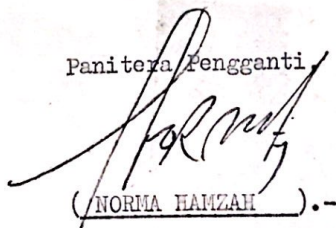 Panitera Pengganti,
( NORMA HAMZAH ).-